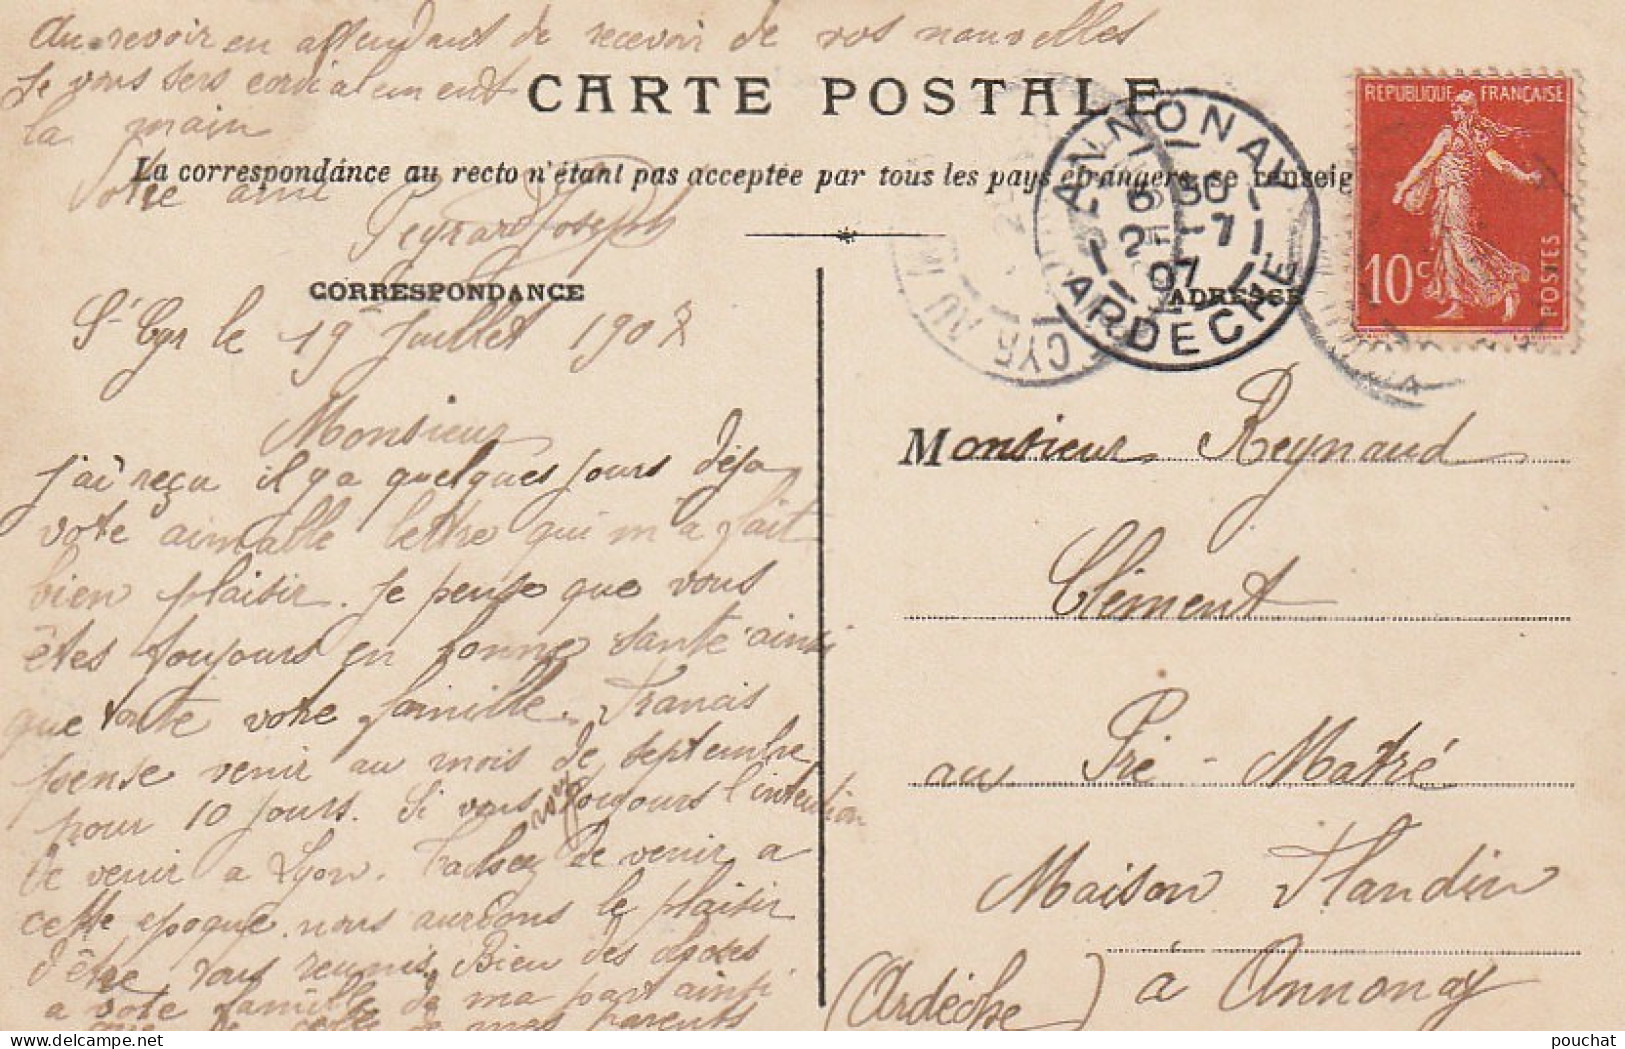 Au revoir en attendant de recevoir de vos nouvelles
Je vous sers cordialement
la main
Votre ami
Peyrard Joseph
CARTE POSTALE
La correspondance au recto n'étant pas acceptée par tous les pays étrangers, se renseig
CORRESPONDANCE
ADRESSE
ANNONAY
6 30
2-7
07
ARDECHE
CYR AU M
REPUBLIQUE FRANÇAISE
10c
POSTES
St Cyr le 19 Juillet 1907
Monsieur
J'ai reçu il y a quelques jours déja
vote aimable lettre qui m'a fait
bien plaisir. Je pense que vous
êtes toujours en bonne santé ainsi
que toute votre famille. Francis
pense venir au mois de septembre
pour 10 jours. Si vous avez toujours l'intention
de venir a Lyon. de venir a
cette epoque nous aurions le plaisir
d'être tous reunis. Bien des choses
a vote famille de ma part ainsi
que de celle de mes parents
Monsieur Reynaud
Clément
au Pré-Matré
Maison Flandin
à Annonay
(Ardèche)
www.delcampe.net
pouchat